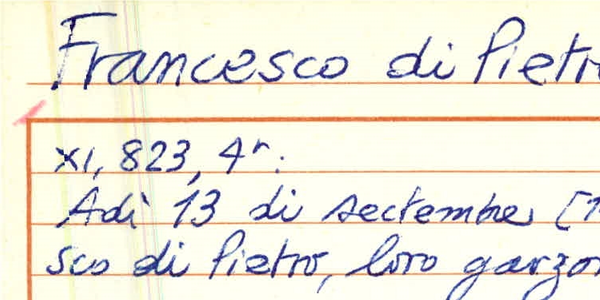 Francesco di Pietro
XI, 823, 4r:
Adì 13 di sectembre [1
sco di Pietro, loro garzon